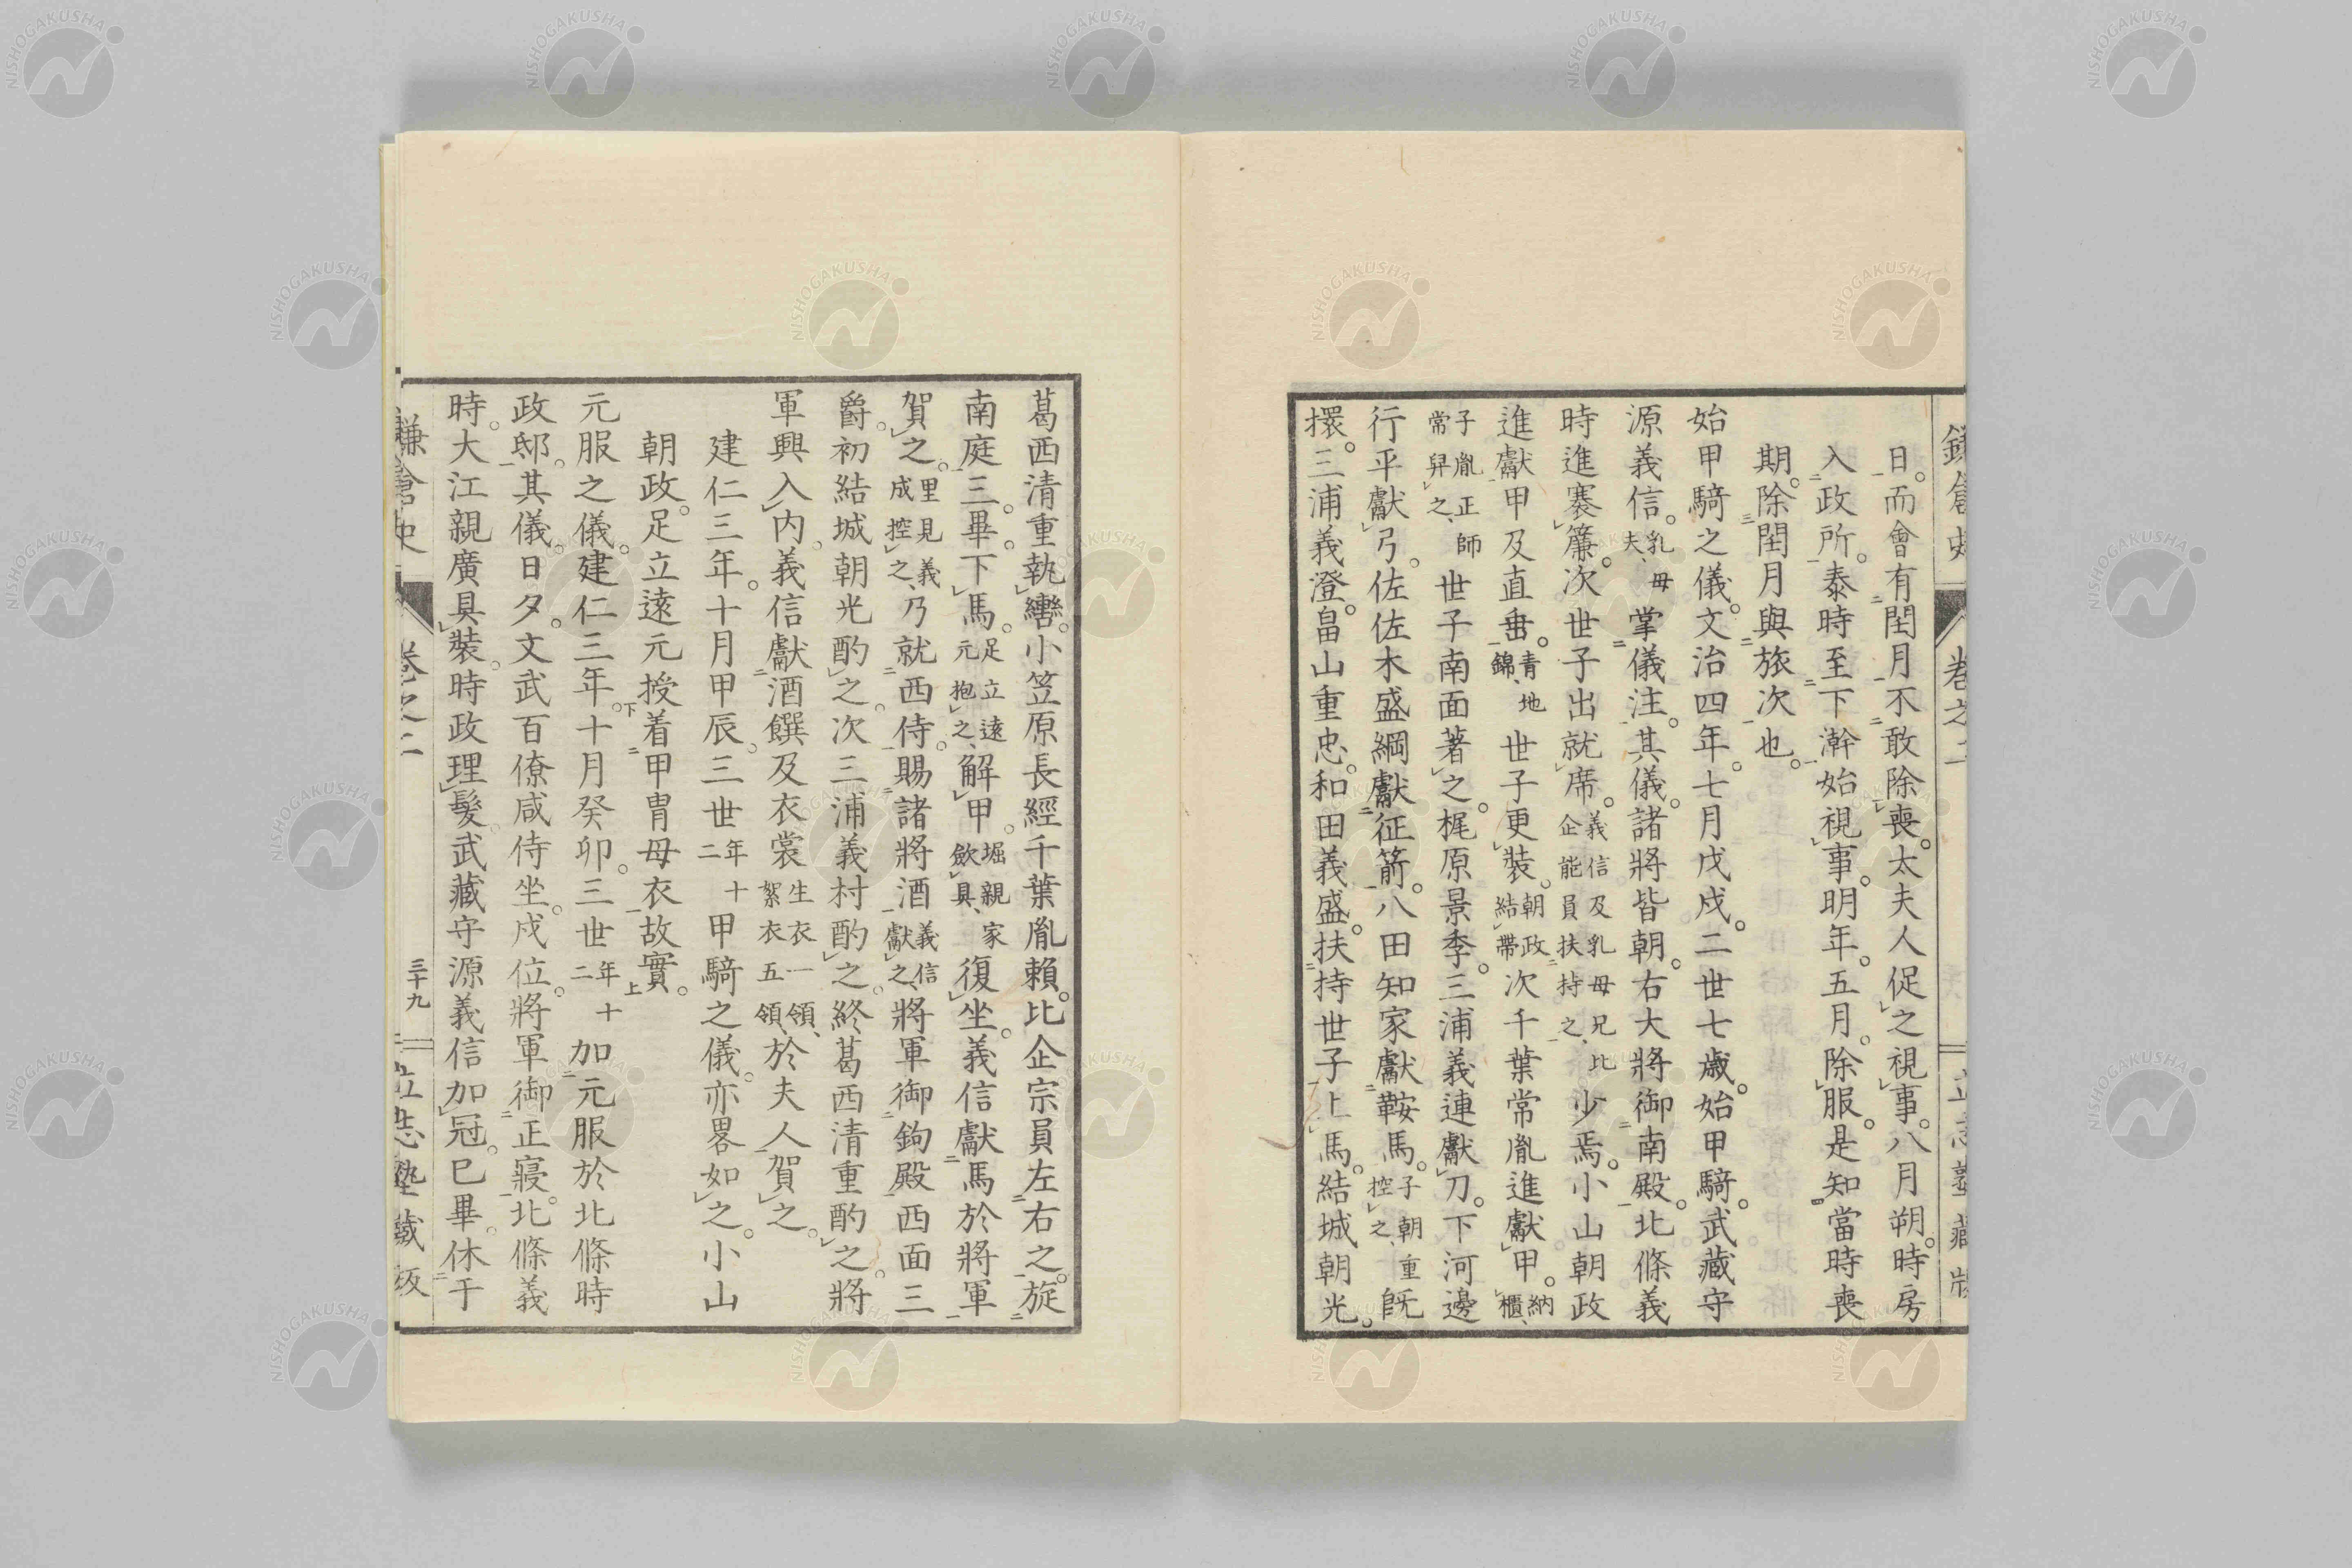 鎌倉史 卷之二 立志塾藏版
日。而會有閏月不敢除喪。太夫人促之視事。八月朔。時房
入政所。泰時至下澣始視事。明年。五月。除服。是知當時喪
期。除閏月與旅次也。
始甲騎之儀。文治四年。七月戊戌。二世七歲。始甲騎。武藏守
源義信。乳母夫、掌儀注。其儀。諸將皆朝。右大將御南殿。北條義
時進褰簾。次世子出就席。義信及乳母兄比企能員扶持之、少焉。小山朝政
進獻甲及直垂。青地錦、世子更裝。朝政結帶次千葉常胤進獻甲。納櫃、
子胤正師常舁之、世子南面著之。梶原景季。三浦義連獻刀。下河邊
行平獻弓。佐佐木盛綱獻征箭。八田知家獻鞍馬。子朝重控之、既
擐。三浦義澄。畠山重忠。和田義盛。扶持世子上馬。結城朝光。
葛西清重執轡。小笠原長經千葉胤賴。比企宗員左右之。旋
南庭三。畢。下馬。足立遠元抱之、解甲。堀親家斂具、復坐。義信獻馬於將軍
賀之。里見義成控之、乃就西侍。賜諸將酒義信獻之、將軍御鉤殿西面三
爵。初結城朝光酌之。次三浦義村酌之。終葛西清重酌之。將
軍興入內。義信獻酒饌及衣裳生衣一領、絮衣五領、於夫人賀之。
建仁三年。十月甲辰。三世年十二甲騎之儀。亦畧如之。小山
朝政。足立遠元授着甲胄母衣故實。
元服之儀。建仁三年。十月癸卯。三世年十二加元服於北條時
政邸。其儀。日夕。文武百僚咸侍坐。戍位。將軍御正寢。北條義
時。大江親廣具裝。時政理髮。武藏守源義信加冠。已畢。休于
鎌倉史 卷之二 三十九 立志塾藏版